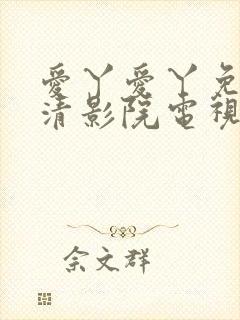 愛丫愛丫免
清影院電視
佘文群